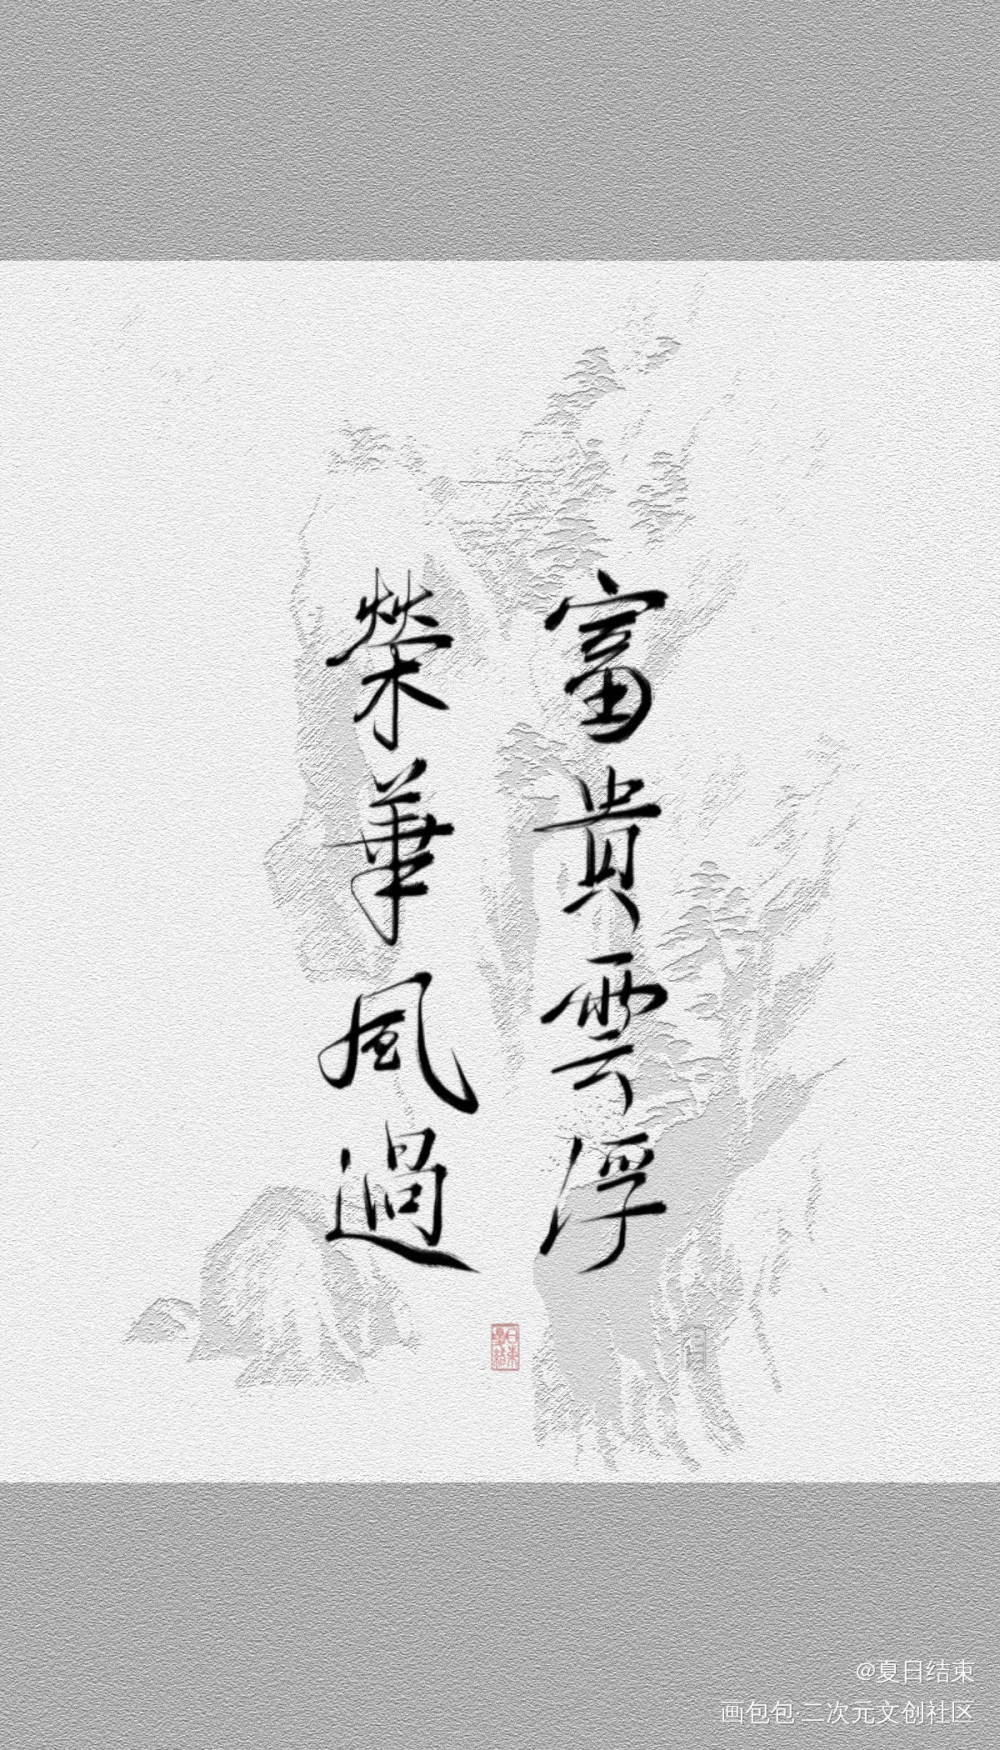 富貴雲浮
榮華風過
@夏日结束
画包包·二次元文创社区